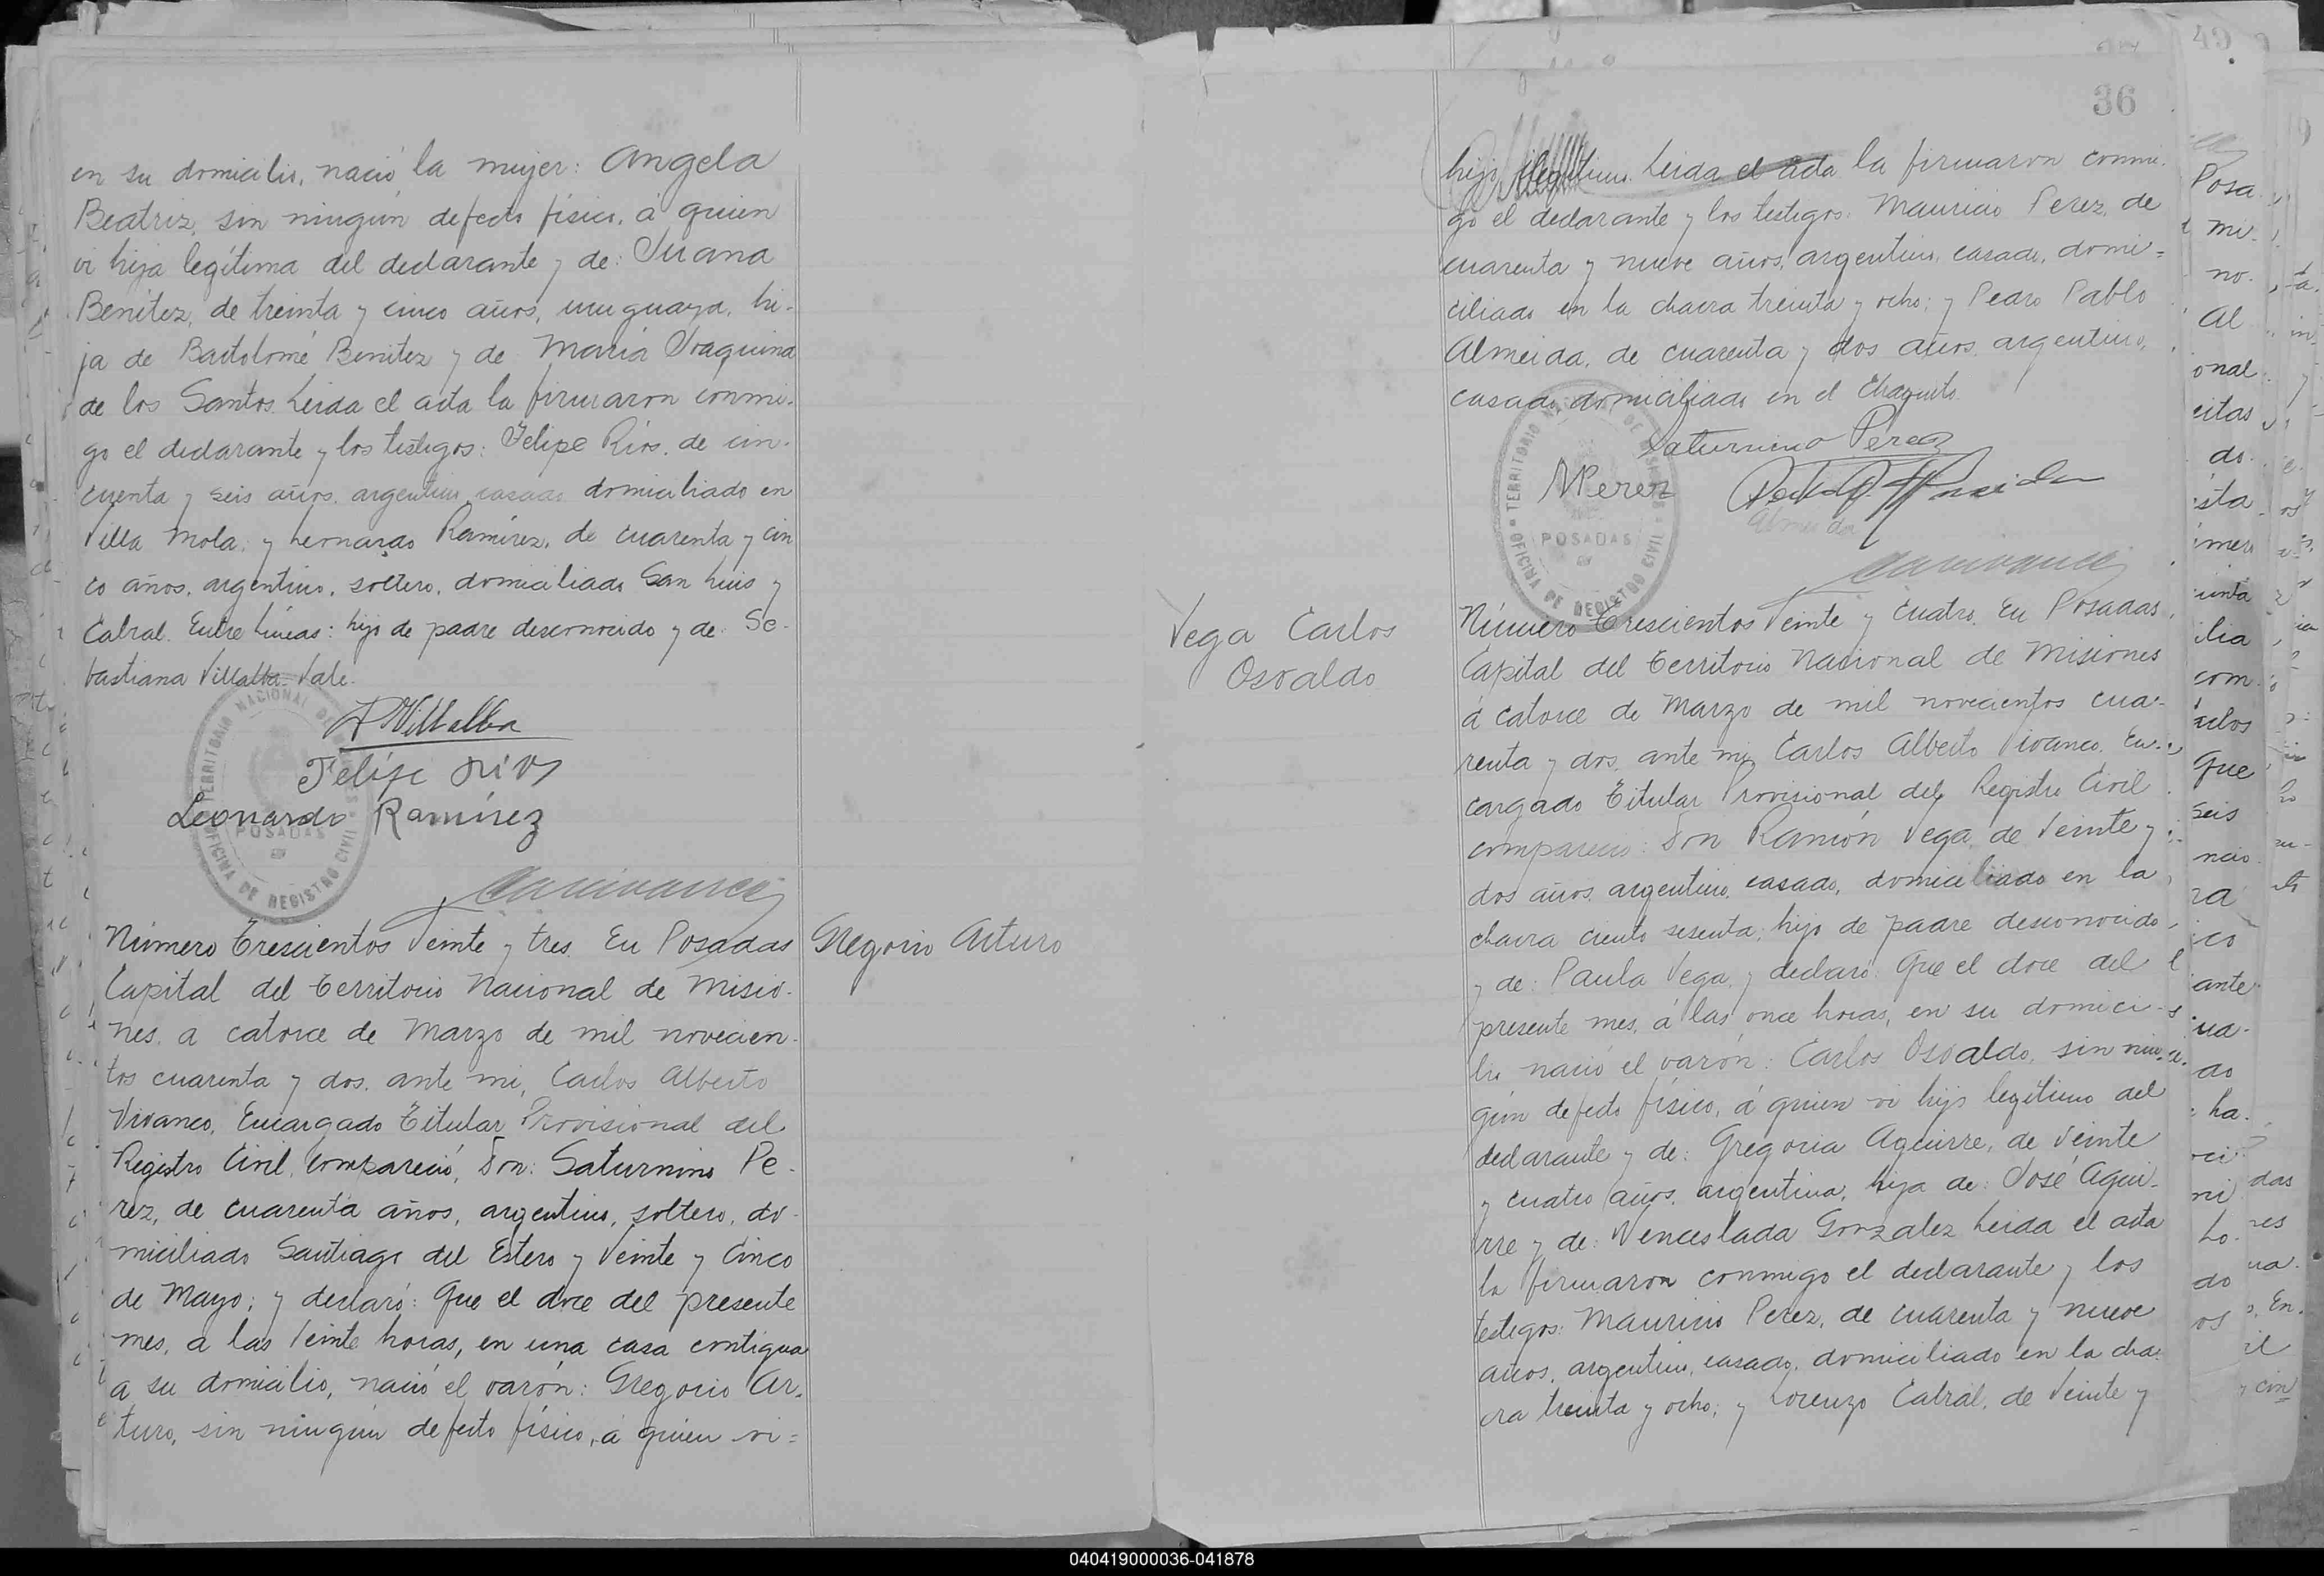 en su domicilio, nació la mujer: Angela
Beatriz, sin ningún defecto físico, á quien
vi hija legítima del declarante y de: Juana
Benitez, de treinta y cinco años, uruguaya, hi-
ja de Bartolomé Benitez y de Maria Joaquina
de los Santos. Leida el acta la firmaron conmi-
go el declarante y los testigos: Felipe Rios, de cin-
cuenta y seis años, argentino, casado domiciliado en
Villa Mola; y Leonardo Ramírez, de cuarenta y cin
co años, argentino, soltero, domiciliado San Luis y
Cabral. Entre líneas: hijo de padre desconocido y de: Se-
bastiana Villalba. Vale.
TERRITORIO NACIONAL DE MISIONES
POSADAS
OFICINA DE REGISTRO CIVIL
Villalba
Felipe Rios
Leonardo Ramírez
Número Trescientos Veinte y tres. En Posadas
Gregorio Arturo
Capital del Territorio Nacional de Misio-
nes, a catorce de Marzo de mil novecien-
tos cuarenta y dos, ante mi, Carlos Alberto
Vivanco, Encargado Titular Provisional del
Registro Civil, compareció, Don: Saturnino Pe-
rez, de cuarenta años, argentino, soltero, do-
miciliado Santiago del Estero y Veinte y Cinco
de Mayo; y declaró: Que el doce del presente
mes, a las Veinte horas, en una casa contigua
a su domicilio, nació el varón: Gregorio Ar-
turo, sin ningún defecto físico, á quien vi=
36
hijo ilegítimo. Leida el acta la firmaron conmi-
go el declarante y los testigos: Mauricio Perez, de
cuarenta y nueve años, argentino, casado, domi=
ciliado en la chacra treinta y ocho; y Pedro Pablo
Almeida, de cuarenta y dos años, argentino,
casado, domiciliado en el Chaquito.
Saturnino Perez
MPerez
Almeida
TERRITORIO NACIONAL DE MISIONES
POSADAS
OFICINA DE REGISTRO CIVIL
Vega Carlos
Osvaldo
Número Trescientos Veinte y Cuatro. En Posadas,
Capital del Territorio Nacional de Misiones
á catorce de Marzo de mil novecientos cua-
renta y dos, ante mi, Carlos Alberto Vivanco, En-
cargado Titular Provisional del Registro Civil
compareció: Don Ramón Vega, de Veinte y
dos años, argentino, casado, domiciliado en la
chacra ciento sesenta; hijo de padre desconocido
y de: Paula Vega, y declaró: Que el doce del
presente mes, á las once horas, en su domici-
lio nació el varón: Carlos Osvaldo, sin nin-
gún defecto físico, á quien vi hijo legítimo del
declarante y de: Gregoria Aguirre, de Veinte
y cuatro años, argentina, hija de: José Agui-
rre y de: Venceslada Gonzalez Leida el acta
la firmaron conmigo el declarante y los
testigos: Mauricio Perez, de cuarenta y nueve
años, argentino, casado, domiciliado en la cha-
cra treinta y ocho; y Lorenzo Cabral, de Veinte y
49
040419000036-041878